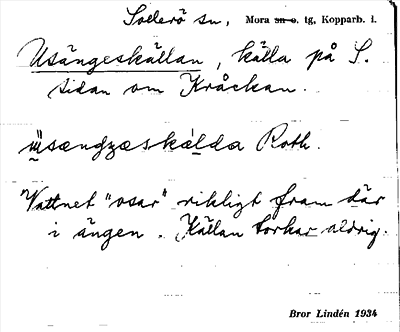 Sollerö sn, Mora sn o. tg, Kopparb. l.
Usängeskällan, källa på S.
sidan om Kråckan.
ɯsængzæskálda Roth.
Vattnet "osar" rikligt fram där
i ängen. Källan torkar aldrig.
Bror Lindén 1934